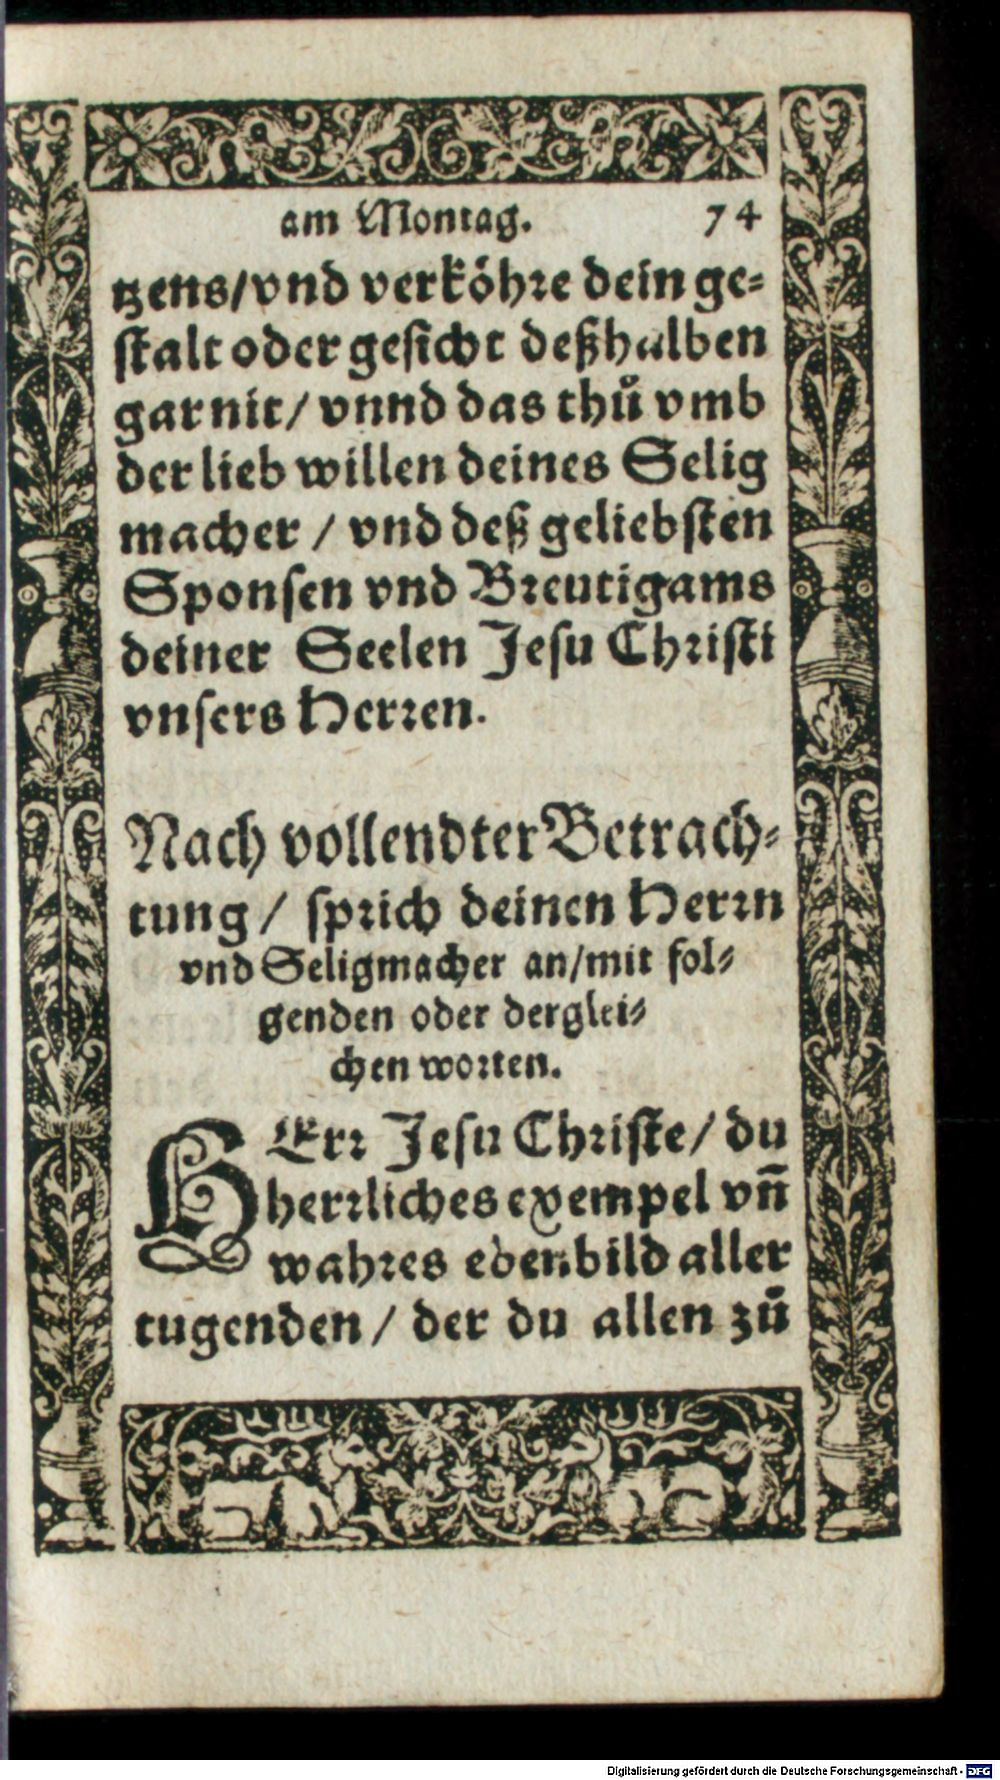 am Montag. 74
tzens/vnd verköhre dein ge-
stalt oder gesicht deßhalben
gar nit/ vnnd das thů vmb
der lieb willen deines Selig
macher / vnd deß geliebsten
Sponsen vnd Breutigams
deiner Seelen Jesu Christi
vnsers Herren.
Nach vollendter Betrach-
tung / sprich deinen Herrn
vnd Seligmacher an/mit fol-
genden oder derglei-
chen worten.
HErr Jesu Christe/ du
herrliches exempel vn̄
wahres ebenbild aller
tugenden / der du allen zů
Digitalisierung gefördert durch die Deutsche Forschungsgemeinschaft - DFG